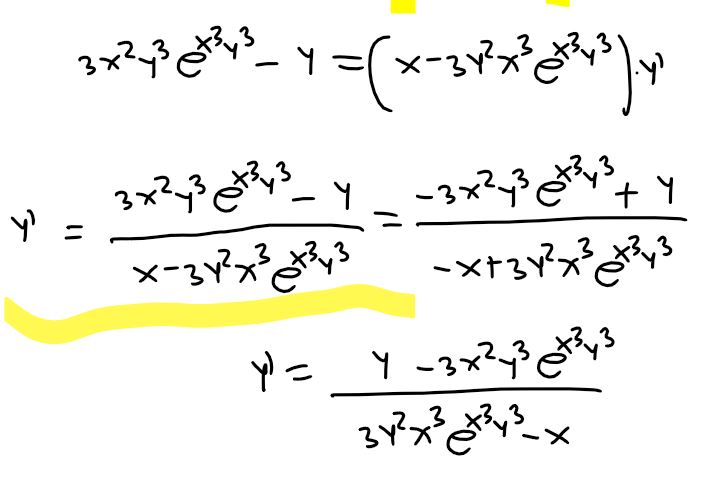 3x²y³e^{x³y³} - y = (x - 3y²x³e^{x³y³}) · y'
y' = \frac{3x²y³e^{x³y³} - y}{x - 3y²x³e^{x³y³}} = \frac{-3x²y³e^{x³y³} + y}{-x + 3y²x³e^{x³y³}}
y' = \frac{y - 3x²y³e^{x³y³}}{3y²x³e^{x³y³} - x}